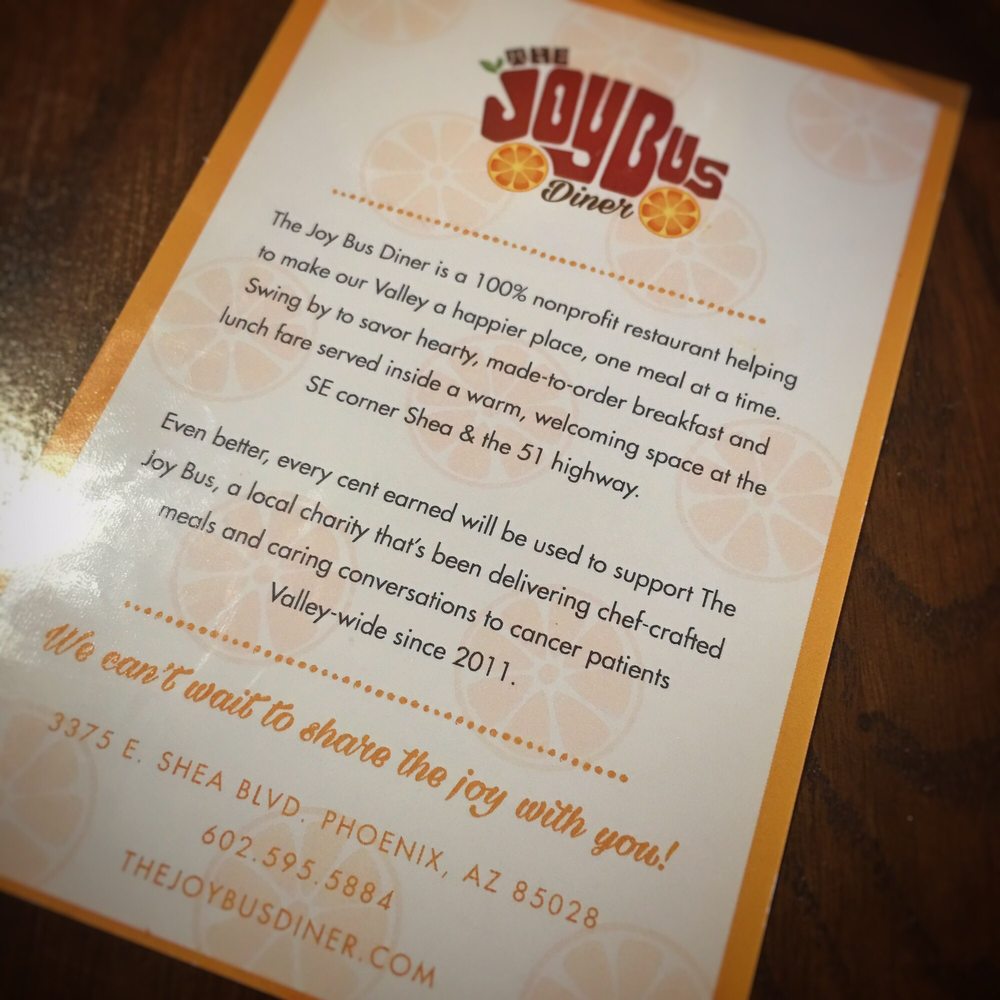 THE
JOYBUS
Diner
The Joy Bus Diner is a 100% nonprofit restaurant helping
to make our Valley a happier place, one meal at a time.
Swing by to savor hearty, made-to-order breakfast and
lunch fare served inside a warm, welcoming space at the
SE corner Shea & the 51 highway.
Even better, every cent earned will be used to support The
Joy Bus, a local charity that's been delivering chef-crafted
meals and caring conversations to cancer patients
Valley-wide since 2011.
We can't wait to share the joy with you!
3375 E. SHEA BLVD. PHOENIX, AZ 85028
602.595.5884
THEJOYBUSDINER.COM